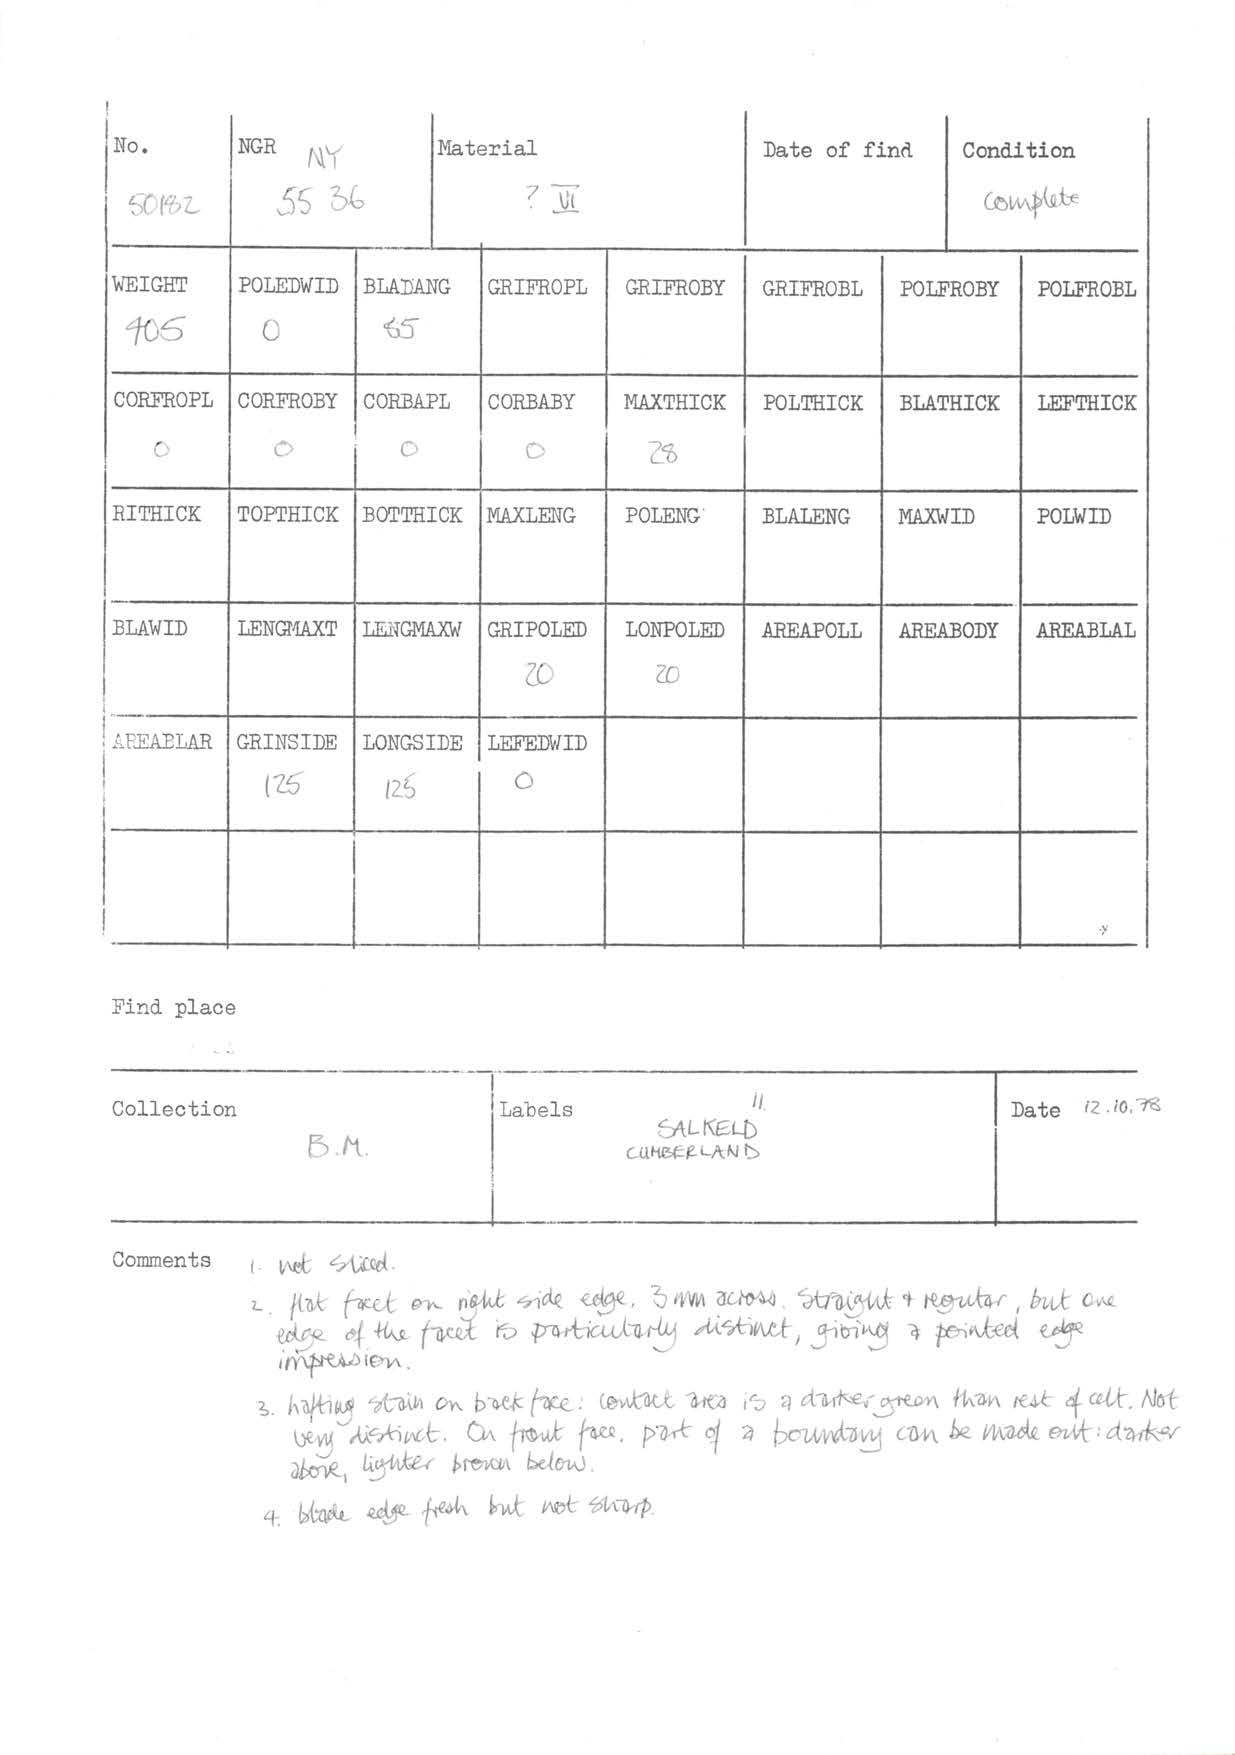 No. NGR NY Material Date of find Condition
50182 55 36 ? VI complete
WEIGHT POLEDWID BLADANG GRIFROPL GRIFROBY GRIFROBL POLFROBY POLFROBL
405 0 85
CORFROPL CORFROBY CORBAPL CORBABY MAXTHICK POLTHICK BLATHICK LEFTHICK
0 0 0 0 28
RITHICK TOPTHICK BOTTHICK MAXLENG POLENG BLALENG MAXWID POLWID
BLAWID LENGMAXT LENGMAXW GRIPOLED LONPOLED AREAPOLL AREABODY AREABLAL
20 20
AREABLAR GRINSIDE LONGSIDE LEFEDWID
125 125 0
Find place
Collection Labels 11. Date 12.10.78
B.M. SALKELD
CUMBERLAND
Comments 1. not sliced.
2. flat facet on right side edge, 3mm across. Straight + regular, but one
edge of the facet is particularly distinct, giving a pointed edge
impression.
3. hafting stain on back face: contact area is a darker green than rest of celt. Not
very distinct. On front face, part of a boundary can be made out: darker
above, lighter brown below.
4. blade edge fresh but not sharp.